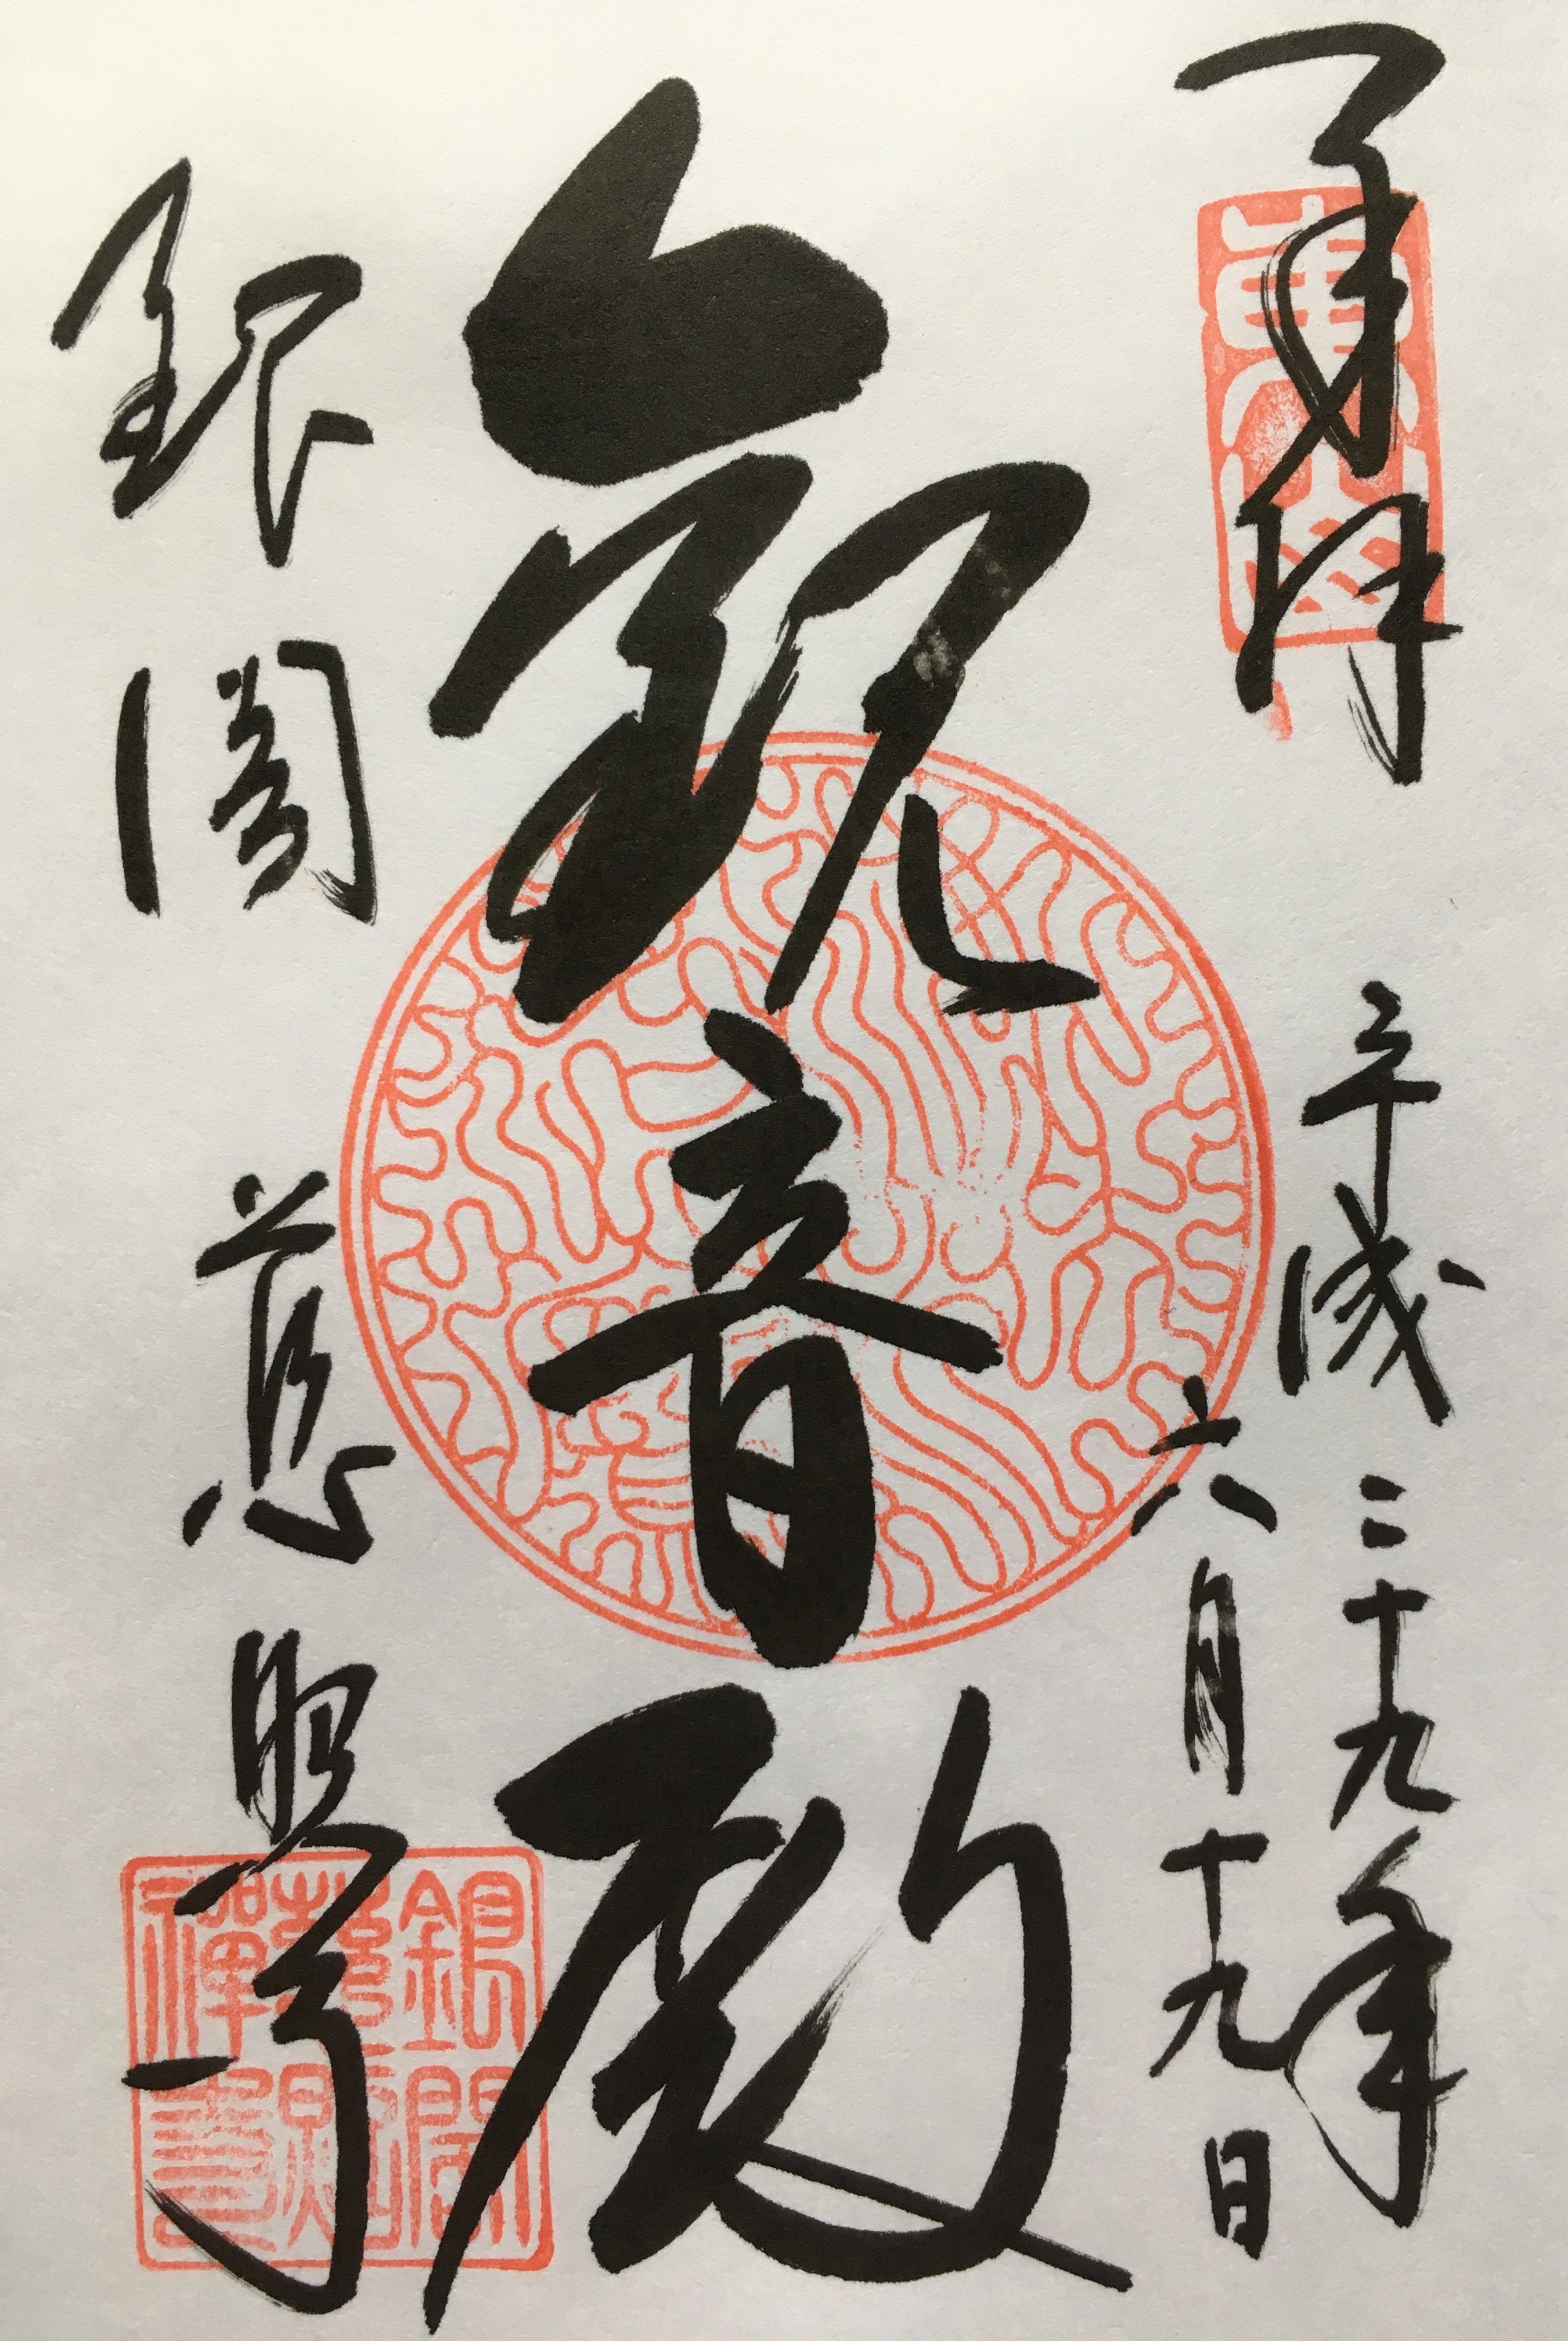 奉拝
平成二十九年
六月十九日
観音殿
銀閣 慈照寺
東山
銀閣
慈照
禪寺